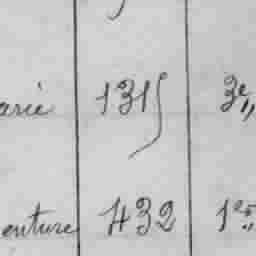 arié 1315 3e„
enture 432 1er„